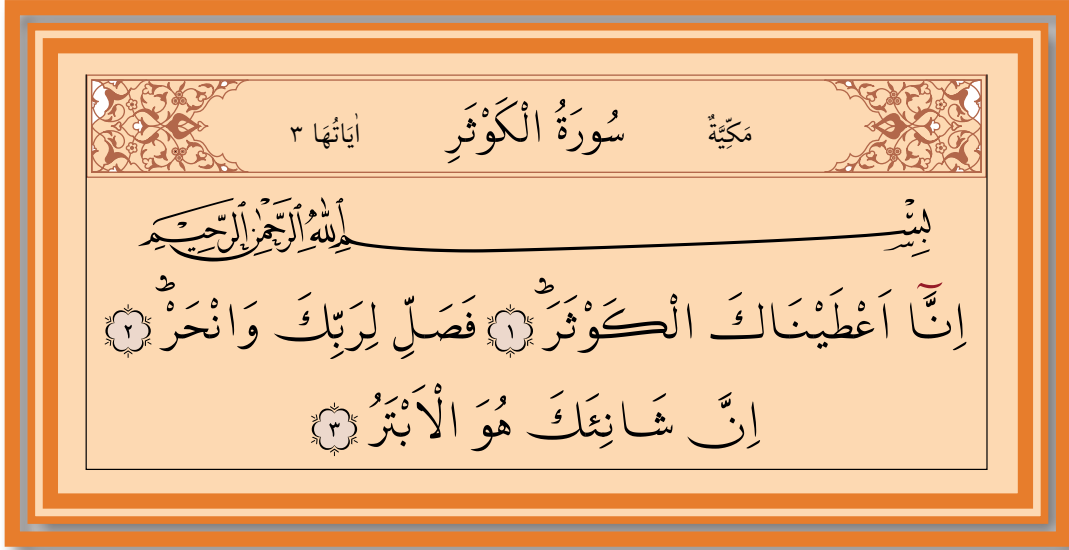 مَكِّيَّةٌ سُورَةُ الْكَوْثَرِ اٰيَاتُهَا ٣
بِسْمِ اللّٰهِ الرَّحْمٰنِ الرَّحِيمِ
اِنَّٓا اَعْطَيْنَاكَ الْكَوْثَرَۜ ١ فَصَلِّ لِرَبِّكَ وَانْحَرْۜ ٢
اِنَّ شَانِئَكَ هُوَ الْاَبْتَرُ ٣